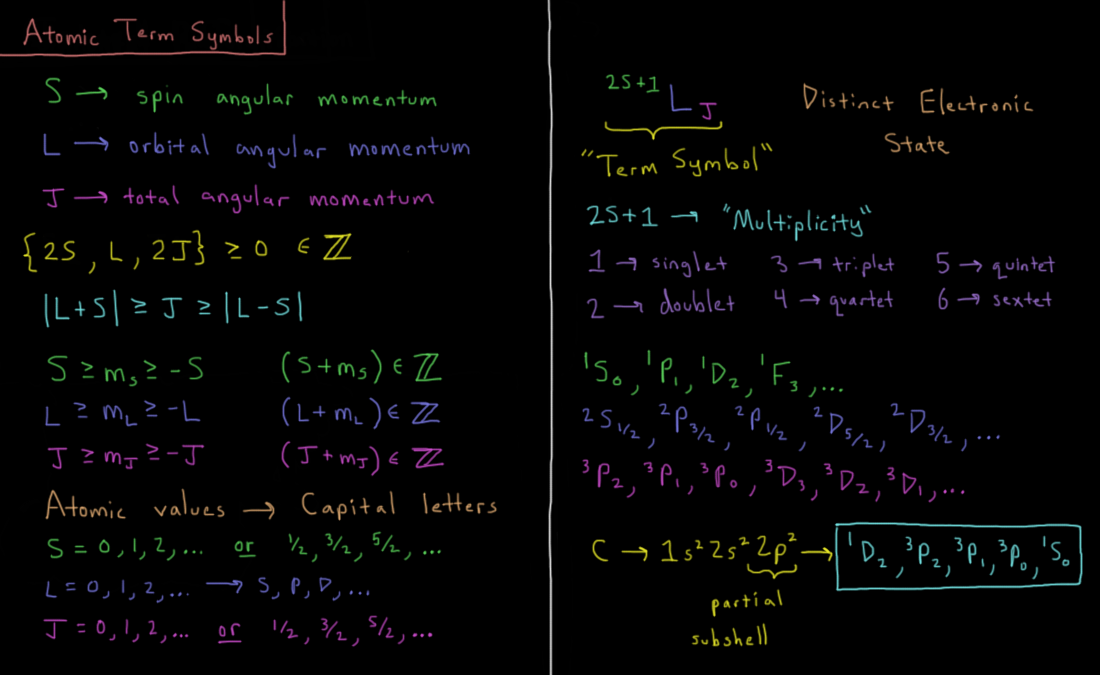 Atomic Term Symbols
S → spin angular momentum
L → orbital angular momentum
J → total angular momentum
{2S, L, 2J} ≥ 0 ∈ ℤ
|L+S| ≥ J ≥ |L-S|
S ≥ mₛ ≥ -S (S+mₛ) ∈ ℤ
L ≥ m_L ≥ -L (L+m_L) ∈ ℤ
J ≥ m_J ≥ -J (J+m_J) ∈ ℤ
Atomic values → Capital letters
S = 0, 1, 2, ... or 1/2, 3/2, 5/2, ...
L = 0, 1, 2, ... → S, P, D, ...
J = 0, 1, 2, ... or 1/2, 3/2, 5/2, ...
²ˢ⁺¹L_J
"Term Symbol"
Distinct Electronic
State
2S+1 → "Multiplicity"
1 → singlet 3 → triplet 5 → quintet
2 → doublet 4 → quartet 6 → sextet
¹S₀, ¹P₁, ¹D₂, ¹F₃, ...
²S_1/2, ²P_3/2, ²P_1/2, ²D_5/2, ²D_3/2, ...
³P₂, ³P₁, ³P₀, ³D₃, ³D₂, ³D₁, ...
C → 1s² 2s² 2p² → ¹D₂, ³P₂, ³P₁, ³P₀, ¹S₀
partial
subshell